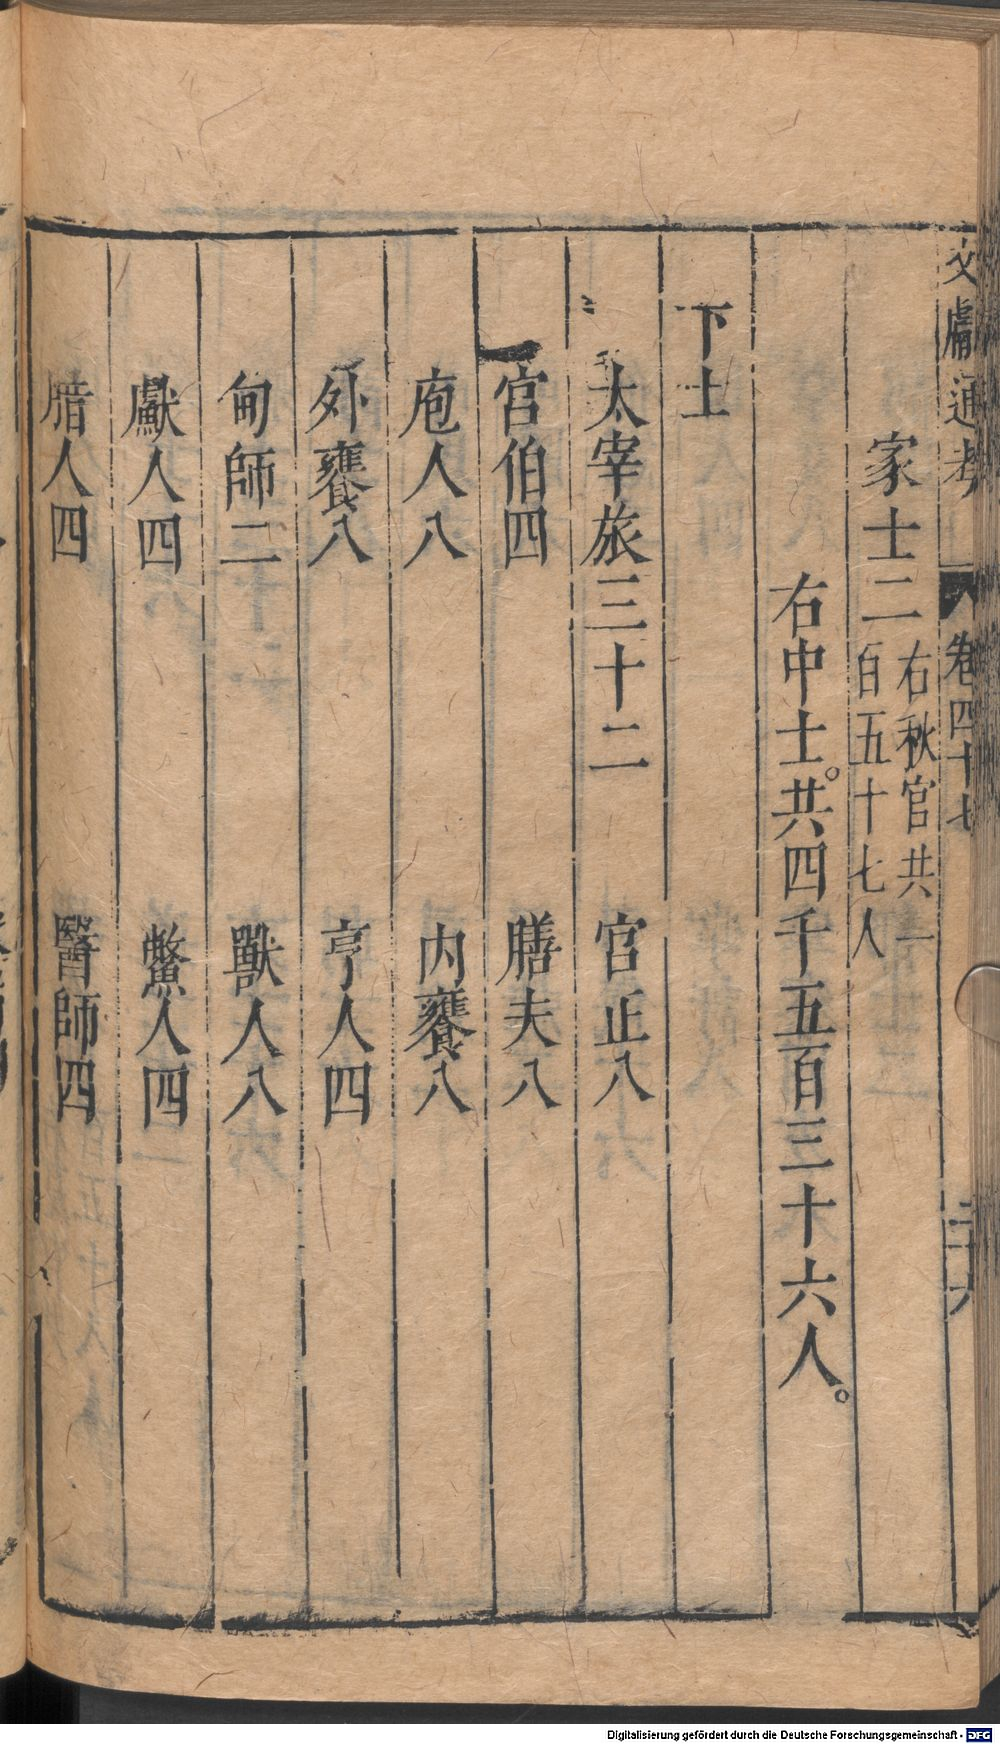 文獻通考 卷四十七 二十六
家士二 右秋官共一百五十七人
右中士。共四千五百三十六人。
下士
太宰旅三十二 宮正八
宮伯四 膳夫八
庖人八 內饔八
外饔八 亨人四
甸師二 獸人八
䱷人四 鱉人四
腊人四 醫師四
Digitalisierung gefördert durch die Deutsche Forschungsgemeinschaft - DFG